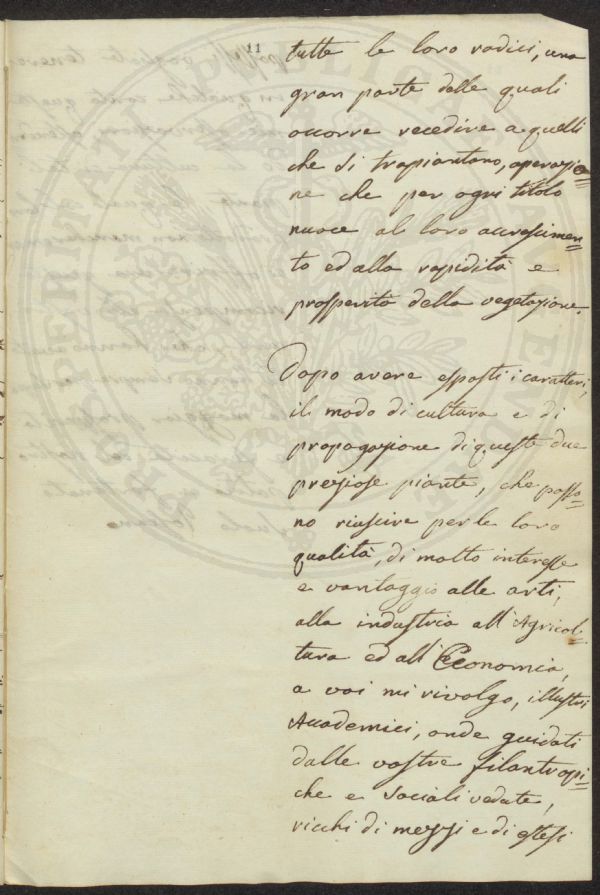 11
tutte le loro radici, una
gran parte delle quali
occorre recedire a quelli
che si trapiantano, operazio=
ne che per ogni titolo
nuoce al loro accrescimen=
to ed alla rapidità e
prosperità della vegetazione.
Dopo avere esposti i caratteri,
il modo di cultura e di
propagazione di queste due
preziose piante, che posso=
no riuscire per le loro
qualità, di molto interesse
e vantaggio alle arti,
alla industria all'Agricol=
tura ed all'Economia,
a voi mi rivolgo, illustri
Accademici, onde guidati
dalle vostre filantropi=
che e sociali vedute,
ricchi di mezzi e di estesi